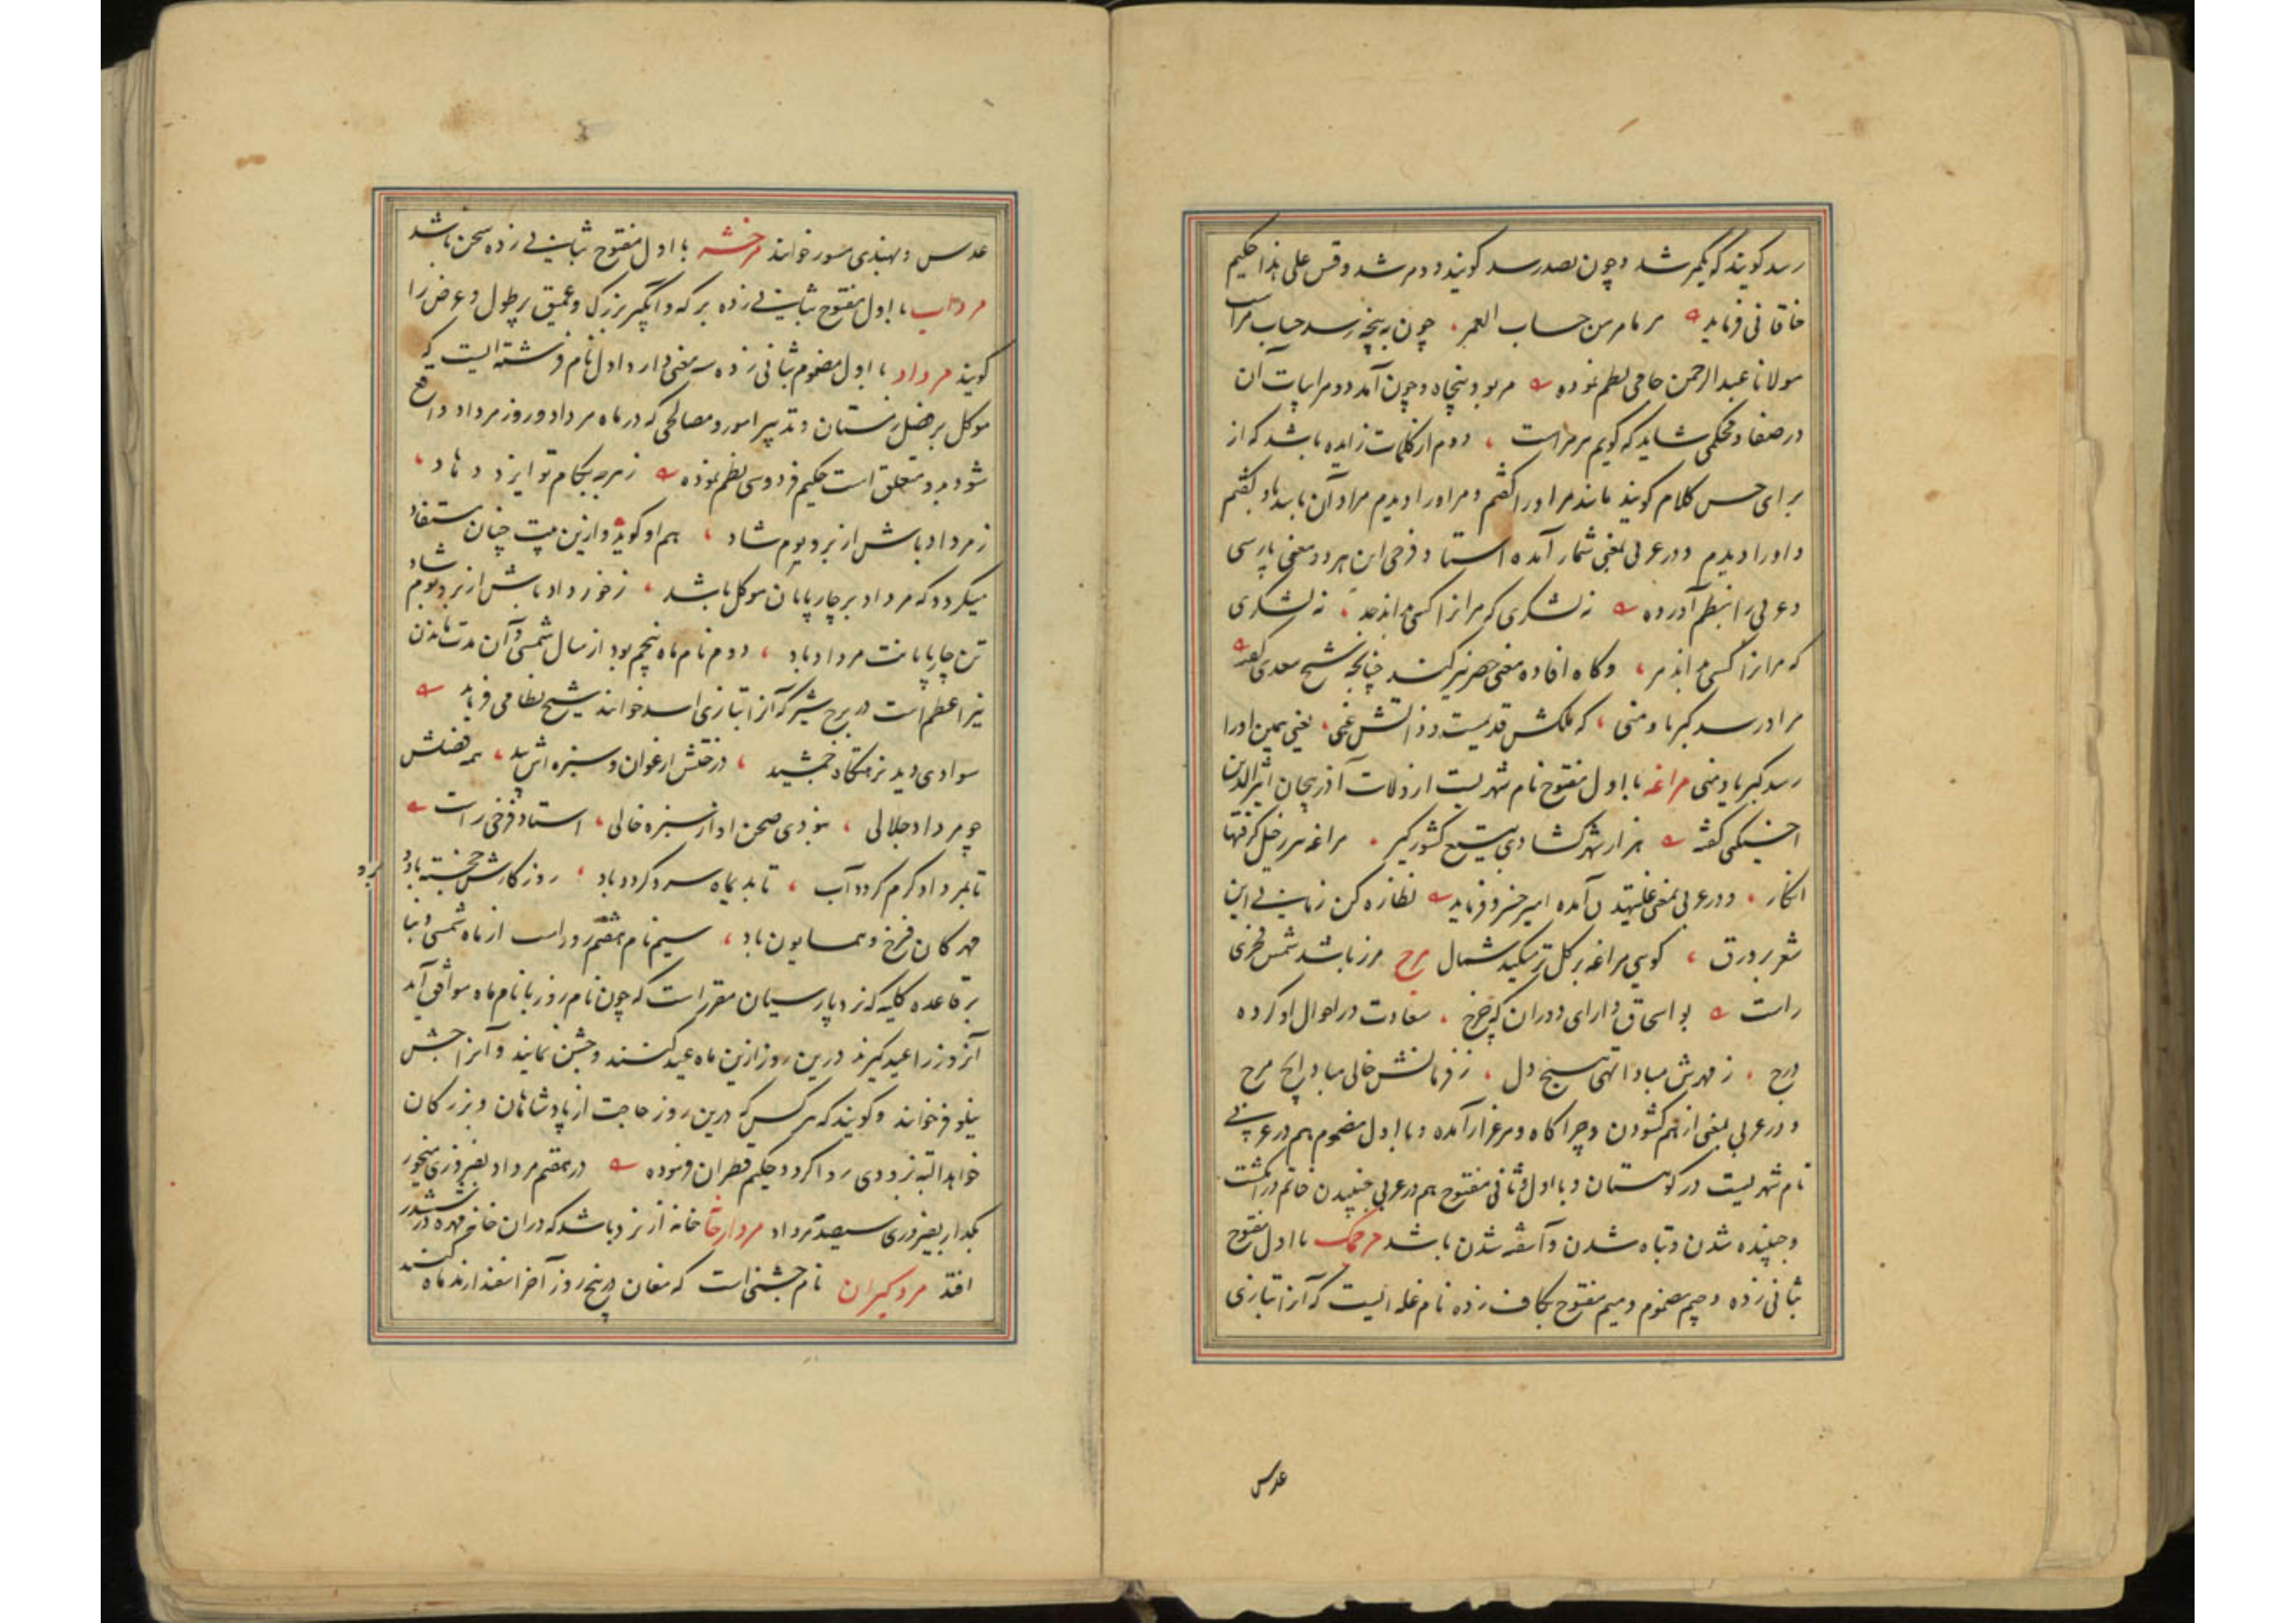 رسد کویند که یکمر شد و چون بصد رسد کویند دو مر شد و قس علی هذا حکیم
خاقانی فرماید مر نامر من حساب العمر چون به پنجه رسد حساب مراست
مولانا عبدالرحمن جامی نظم نموده مر بود پنجاه و چون آمد دو مر ابیات آن
در صفا و محکمی شاید که کویم مرمر است دوم از کلمات زایده باشد که از
برای حسن کلام کویند مانند مر او را کفتم و مر او را دیدم مراد آن باشد که کفتم
و او را دیدم و در عربی بمعنی شمار آمده استاد فرخی این هر دو معنی پارسی
و عربی را بنظم آورده نه لشکری که مر انرا کسی بداند حد نه لشکری
که مر انرا کسی بداند مر و کاه افاده معنی حصر نیز کند چنانچه شیخ سعدی کفته
مر او را رسد کبریا و منی که ملکش قدیمست و ذاتش غنی یعنی همین او را
رسد کبریا و منی مراغه با اول مفتوح نام شهریست از ولایت آذربیجان اثیرالدین
اخسیکتی کفته هزار شهر کشادی بتیغ کشور کیر مراغه سر خیل کرفتها
انکار و در عربی بمعنی غلتیدن آمده امیر خسرو فرماید نظاره کن زمانی این
شعر بر ورق کویی مراغه بر کل تر میکند شمال مرج مرز باشد شمس فخری
راست بو اسحاق دارای دوران که چرخ سعادت در احوال او کرده
درج ز مهرش مبادا تهی هیچ دل ز فرمانش خالی مباد ایچ مرج
و در عربی بمعنی از هم کشودن و چراکاه و مرغزار آمده و با اول مضموم هم در عربی
نام شهریست در کوهستان و با اول و ثانی مفتوح هم در عربی جنبیدن خاتم در انکشت
و جنبیده شدن و تباه شدن و آشفته شدن باشد مرجمک با اول مفتوح
بثانی زده و جیم مضموم و میم مفتوح بکاف زده نام غله ایست که آنرا بتازی
عدس
عدس و بهندی مسور خوانند مرخشه با اول مفتوح بثانی زده نحس باشد
مرداب با اول مفتوح بثانی زده برکه و آبگیر بزرک و عمیق پر طول و عرض را
کویند مرداد با اول مضموم بثانی زده سه معنی دارد اول نام فرشته ایست که
موکل بر فصل زمستان و تدبیر امور و مصالحی که در ماه مرداد و روز مرداد واقع
شود بدو متعلق است حکیم فردوسی نظم نموده ز هرچه بکام تو ایزد دهاد
ز مرداد باش از بر و بوم شاد هم او کوید و ازین بیت چنان مستفاد
میکردد که مرداد بر چارپایان موکل باشد ز خورداد باش از بر و بوم شاد
تن چارپایانت مرداد باد دوم نام ماه پنجم بود از سال شمسی و آن مدت ماندن
نیر اعظم است در برج شیر که آنرا بتازی اسد خوانند شیخ نظامی فرماید
سوادی دید نزهتکاه جمشید درختش ارغوان و سبزه اش بید همه فصلش
چو مرداد جلالی نبودی صحن او از سبزه خالی استاد فرخی راست
تا بمرداد کرم کردد آب تا بدیماه سرد کردد باد روزکارش خجسته باد و
برو
مهرکان فرخ و همایون باد سیم نام هفتم روز است از ماه شمسی و بنا
بر قاعده کلیه که نزد پارسیان مقرر است که چون نام روز با نام ماه موافق آید
آنروز را عید کیرند درین روز ازین ماه عید کنند و جشن نمایند و آنرا جشن
نیلوفر خوانند و کویند که هر کس که درین روز حاجت از پادشاهان و بزرکان
خواهد البته بزودی روا کردد حکیم قطران فرموده در هفتم مرداد بفیروزی میخور
بکدار بفیروزی سیصد مرداد مردارخا خانه از نرد باشد که در ان خانه مهره در ششدر
افتد مردکیران نام جشنی است که مغان در پنج روز آخر اسفندارمذ ماه کنند